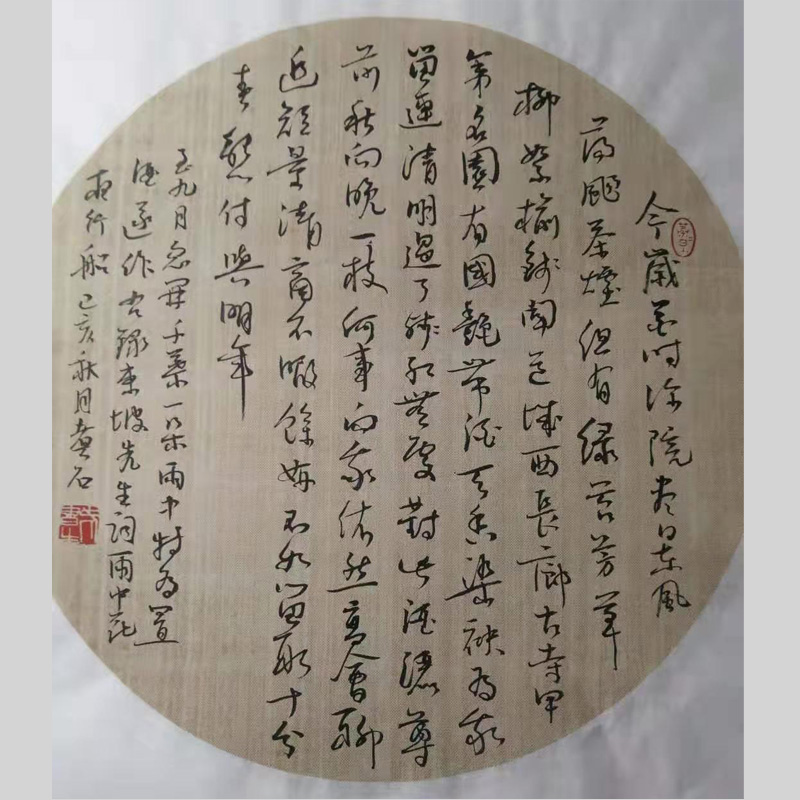 今歲花时深院尽日东風
荡飏茶煙但有绿苔芳草
柳絮榆钱闻道城西長廊古寺甲
第名園有國艳带酒天香染袂为我
留連清明過了残红無處對此酒洒尊
前秋向晚一枝何事向我依然高會聊
追短景清商不暇餘妍不如留取十分
春態付與明年
至九月忽开千葉一朵雨中特为置
酒遂作右録东坡先生词雨中花
夜行船己亥秋月黄石